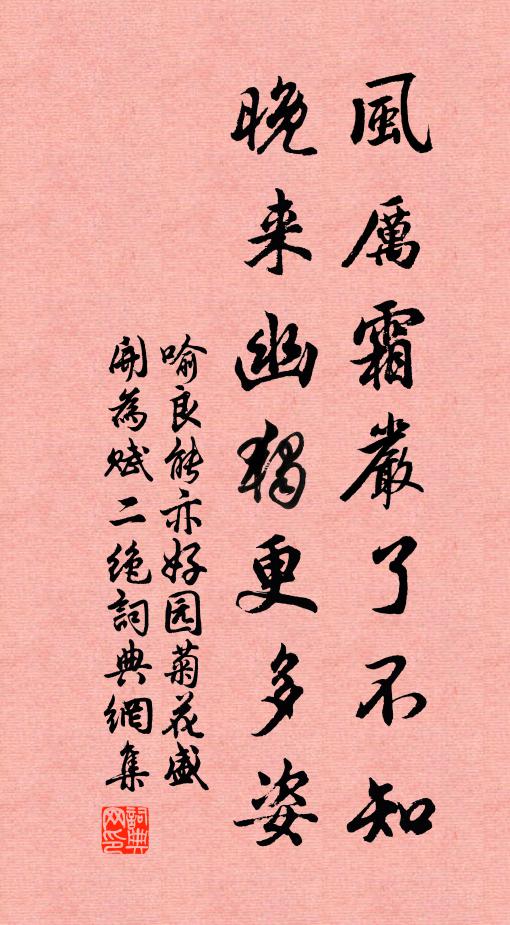 風厲霜嚴了不知
晚来幽獨更多姿
喻良能亦好园菊花盛
開為赋二絶詞典網集
詞典网印